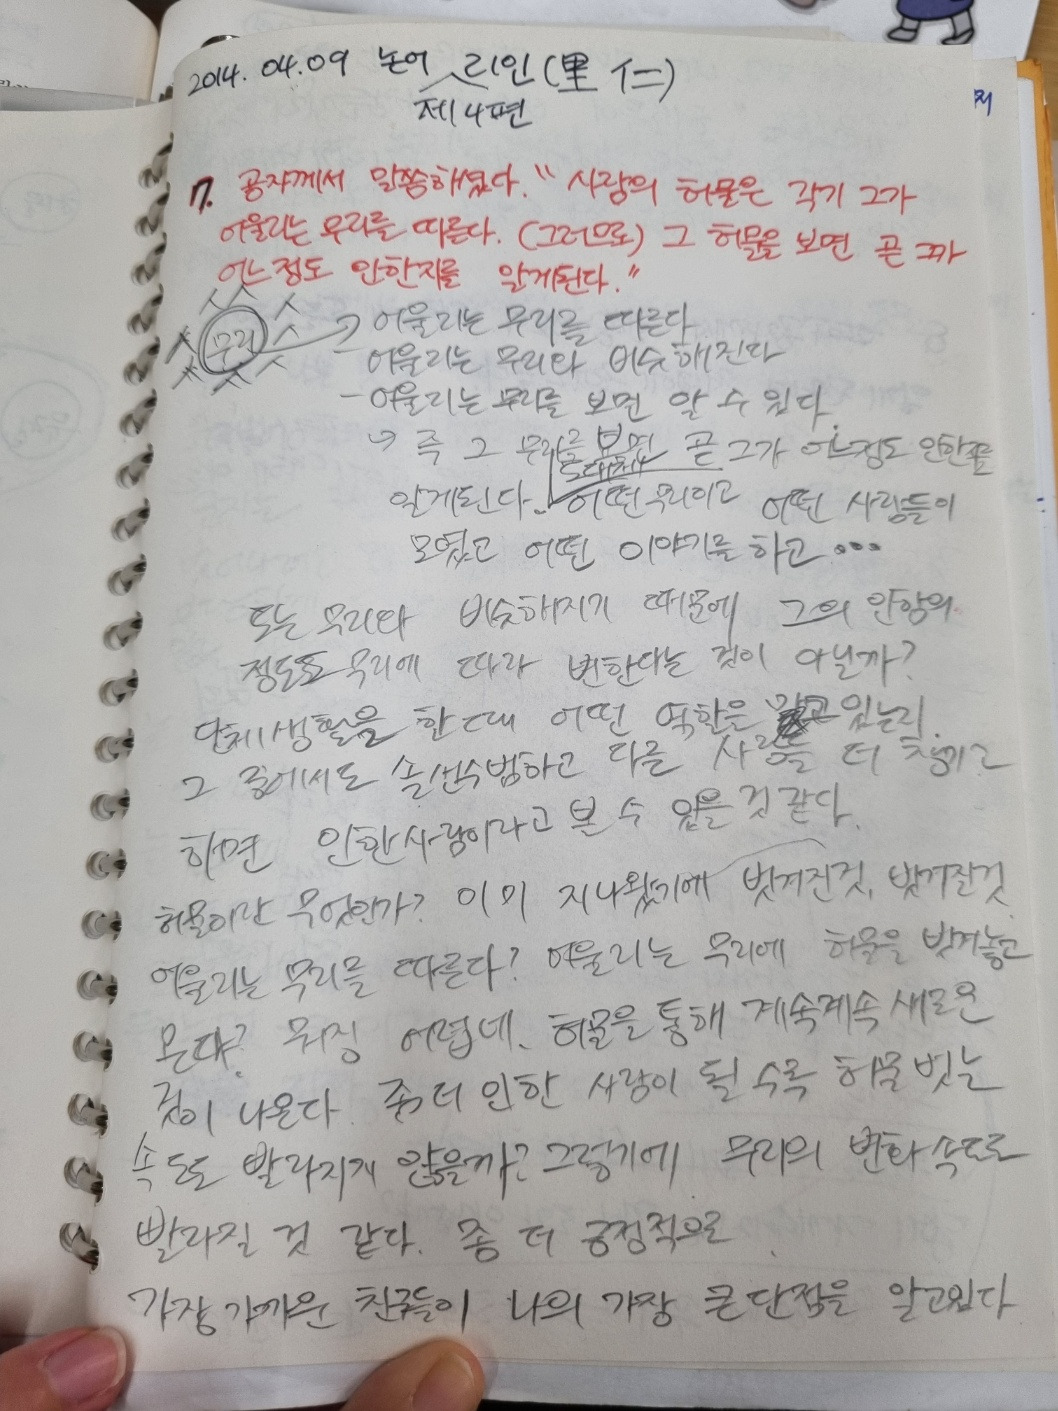 2014. 04. 09 논어 리인(里仁)
제4편
7. 공자께서 말씀하셨다. "사람의 허물은 각기 그가
어울리는 무리를 따른다. (그러므로) 그 허물을 보면 곧 그가
어느정도 인한지를 알게된다."
무리 → 어울리는 무리를 따른다
어울리는 무리와 비슷해진다
- 어울리는 무리를 보면 알 수 있다.
→ 즉 그 무리를 보면 곧 그가 어느정도 인한줄
알게된다. 어떤무리이고 어떤 사람들이
모였고 어떤 이야기를 하고...
또는 무리와 비슷해지기 때문에 그의 인함의
정도도 무리에 따라 변한다는 것이 아닐까?
단체생활을 할때 어떤 역할을 맡고있는지.
그 중에서도 솔선수범하고 다른 사람들 더 챙기고
하면 인한사람이라고 볼 수 있을것 같다.
허물이란 무엇인가? 이미 지나왔기에 벗겨진것, 벗겨진것
어울리는 무리를 따른다? 어울리는 무리에 허물을 벗겨놓고
온다? 뭐징 어렵네. 허물을 통해 계속계속 새로운
것이 나온다. 좀더 인한 사람이 될수록 허물 벗는
속도도 빨라지게 않을까? 그렇기에 무리의 변화속도도
빨라질 것 같다. 좀 더 긍정적으로
가장 가까운 친구들이 나의 가장 큰단점을 알고있다